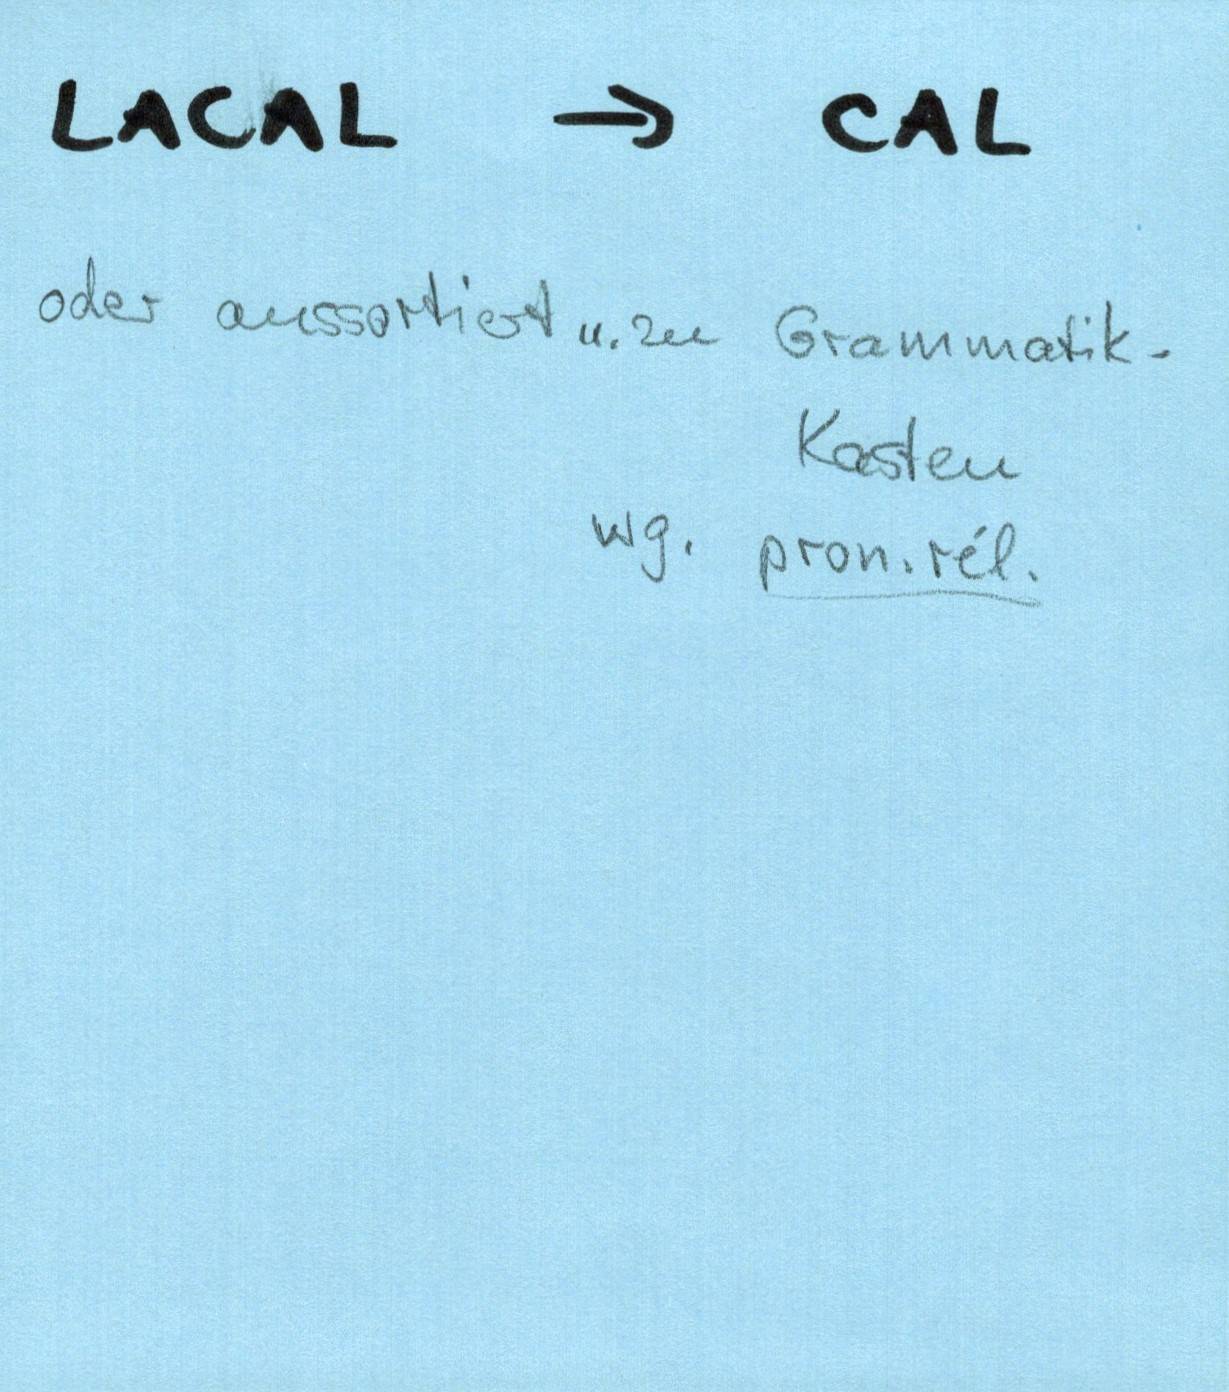 LACAL → CAL
oder aussortiert u. zu Grammatik-
Kasten
wg. pron. rél.